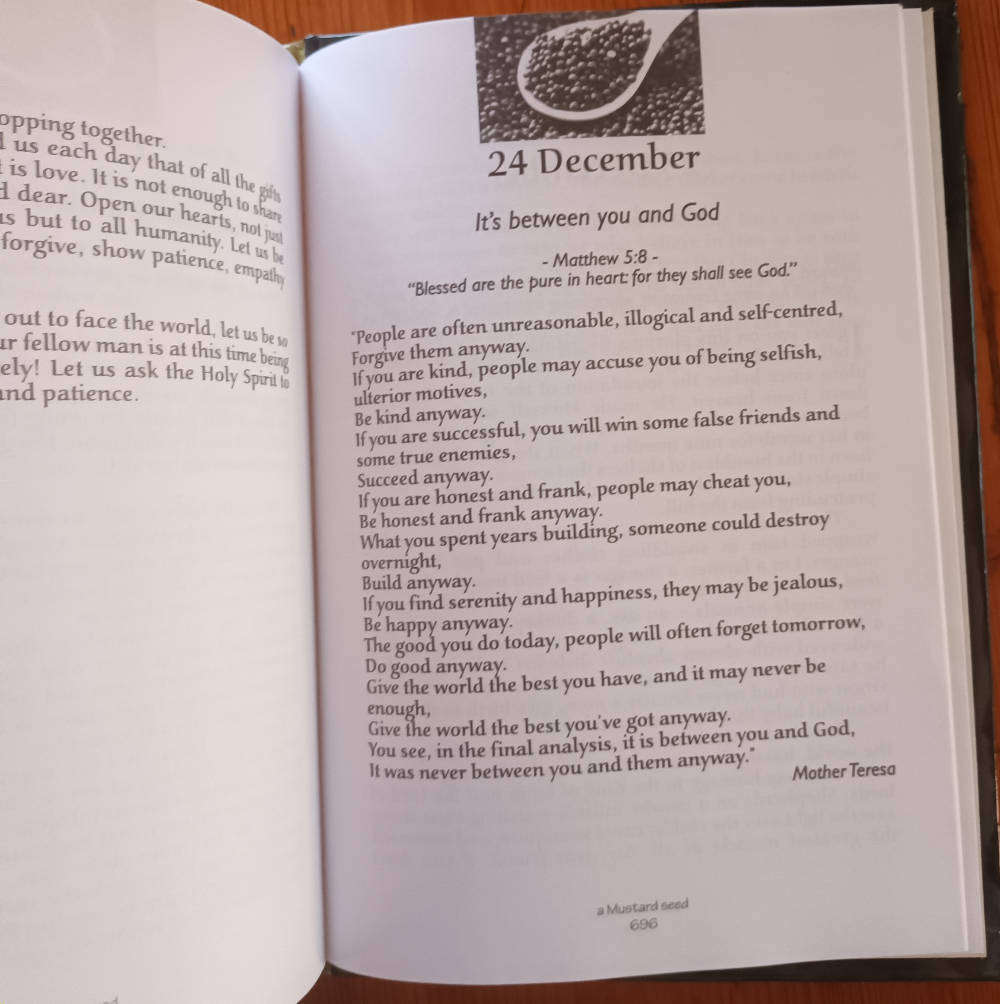 opping together.
us each day that of all the gifts
is love. It is not enough to share
dear. Open our hearts, not just
us but to all humanity. Let us be
forgive, show patience, empathy
out to face the world, let us be so
ur fellow man is at this time being
ely! Let us ask the Holy Spirit to
and patience.
24 December
It's between you and God
- Matthew 5:8 -
“Blessed are the pure in heart: for they shall see God.”
"People are often unreasonable, illogical and self-centred,
Forgive them anyway.
If you are kind, people may accuse you of being selfish,
ulterior motives,
Be kind anyway.
If you are successful, you will win some false friends and
some true enemies,
Succeed anyway.
If you are honest and frank, people may cheat you,
Be honest and frank anyway.
What you spent years building, someone could destroy
overnight,
Build anyway.
If you find serenity and happiness, they may be jealous,
Be happy anyway.
The good you do today, people will often forget tomorrow,
Do good anyway.
Give the world the best you have, and it may never be
enough,
Give the world the best you've got anyway.
You see, in the final analysis, it is between you and God,
It was never between you and them anyway."
Mother Teresa
a Mustard seed
696